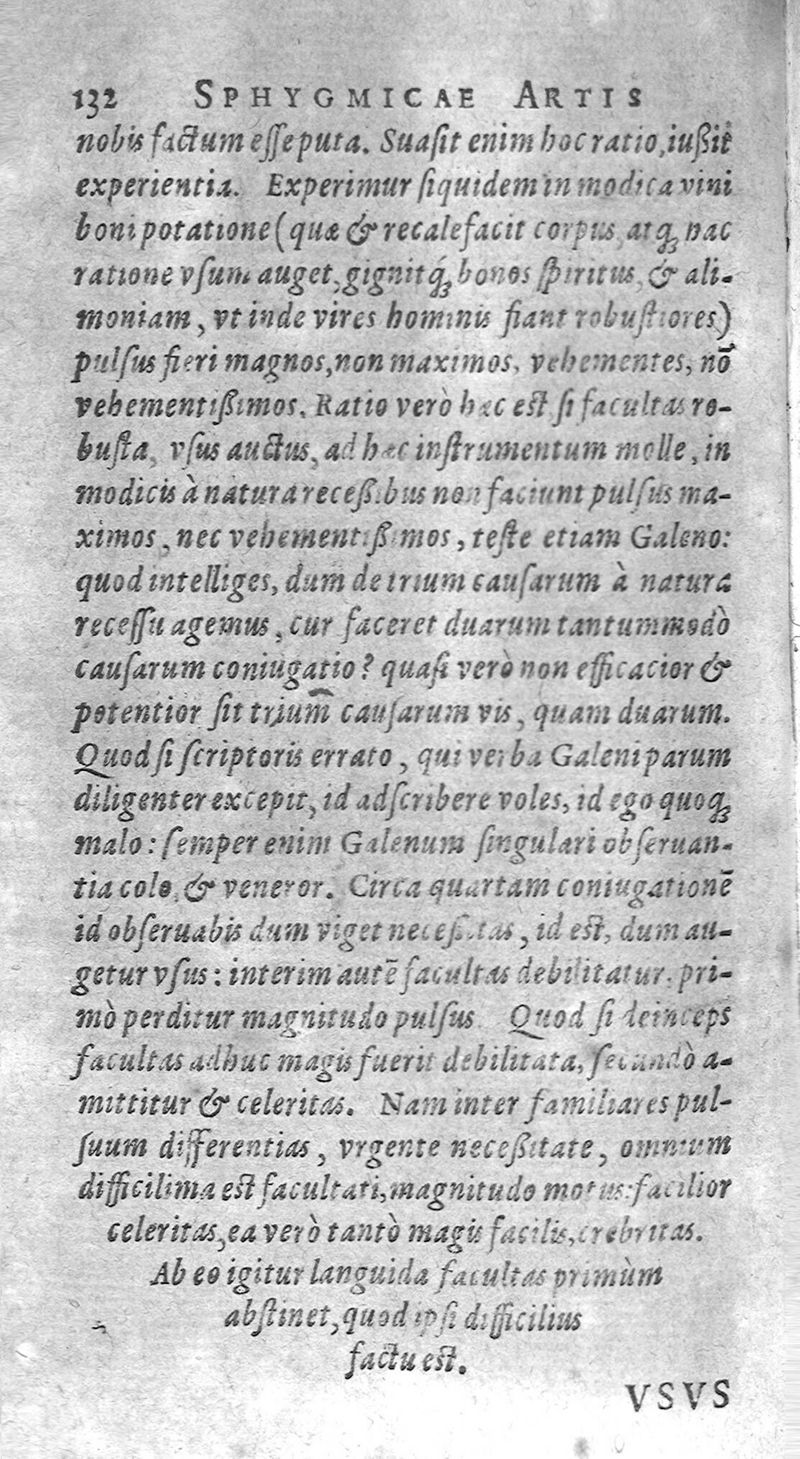 132 SPHYGMICAE ARTIS
nobis factum esse puta. Suasit enim hoc ratio, iußit
experientia. Experimur siquidem in modica vini
boni potatione (quæ & recalefacit corpus atq́ꝫ hac
ratione vsum auget, gignitq́ꝫ bonos spiritus, & ali-
moniam, vt inde vires hominis fiant robustiores)
pulsus fieri magnos, non maximos, vehementes, nō
vehementißimos. Ratio verò hæc est si facultas ro-
busta, vsus auctus, ad hæc instrumentum molle, in
modicis à natura receßibus non faciunt pulsus ma-
ximos, nec vehementißimos, teste etiam Galeno:
quod intelliges, dum de trium causarum à natura
recessu agemus, cur faceret duarum tantummodò
causarum coniugatio? quasi verò non efficacior &
potentior sit trium causarum vis, quam duarum.
Quod si scriptoris errato, qui verba Galeni parum
diligenter excepit, id adscribere voles, id ego quoqꝫ
malo: semper enim Galenum singulari obseruan-
tia colo, & veneror. Circa quartam coniugationē
id obseruabis dum viget neceßitas, id est, dum au-
getur vsus: interim autē facultas debilitatur, pri-
mò perditur magnitudo pulsus. Quod si deinceps
facultas adhuc magis fuerit debilitata, secundò a-
mittitur & celeritas. Nam inter familiares pul-
suum differentias, vrgente neceßitate, omnium
difficilima est facultati, magnitudo motus: facilior
celeritas, ea verò tantò magis facilis, crebritas.
Ab eo igitur languida facultas primùm
abstinet, quod ipsi difficilius
factu est.
VSVS